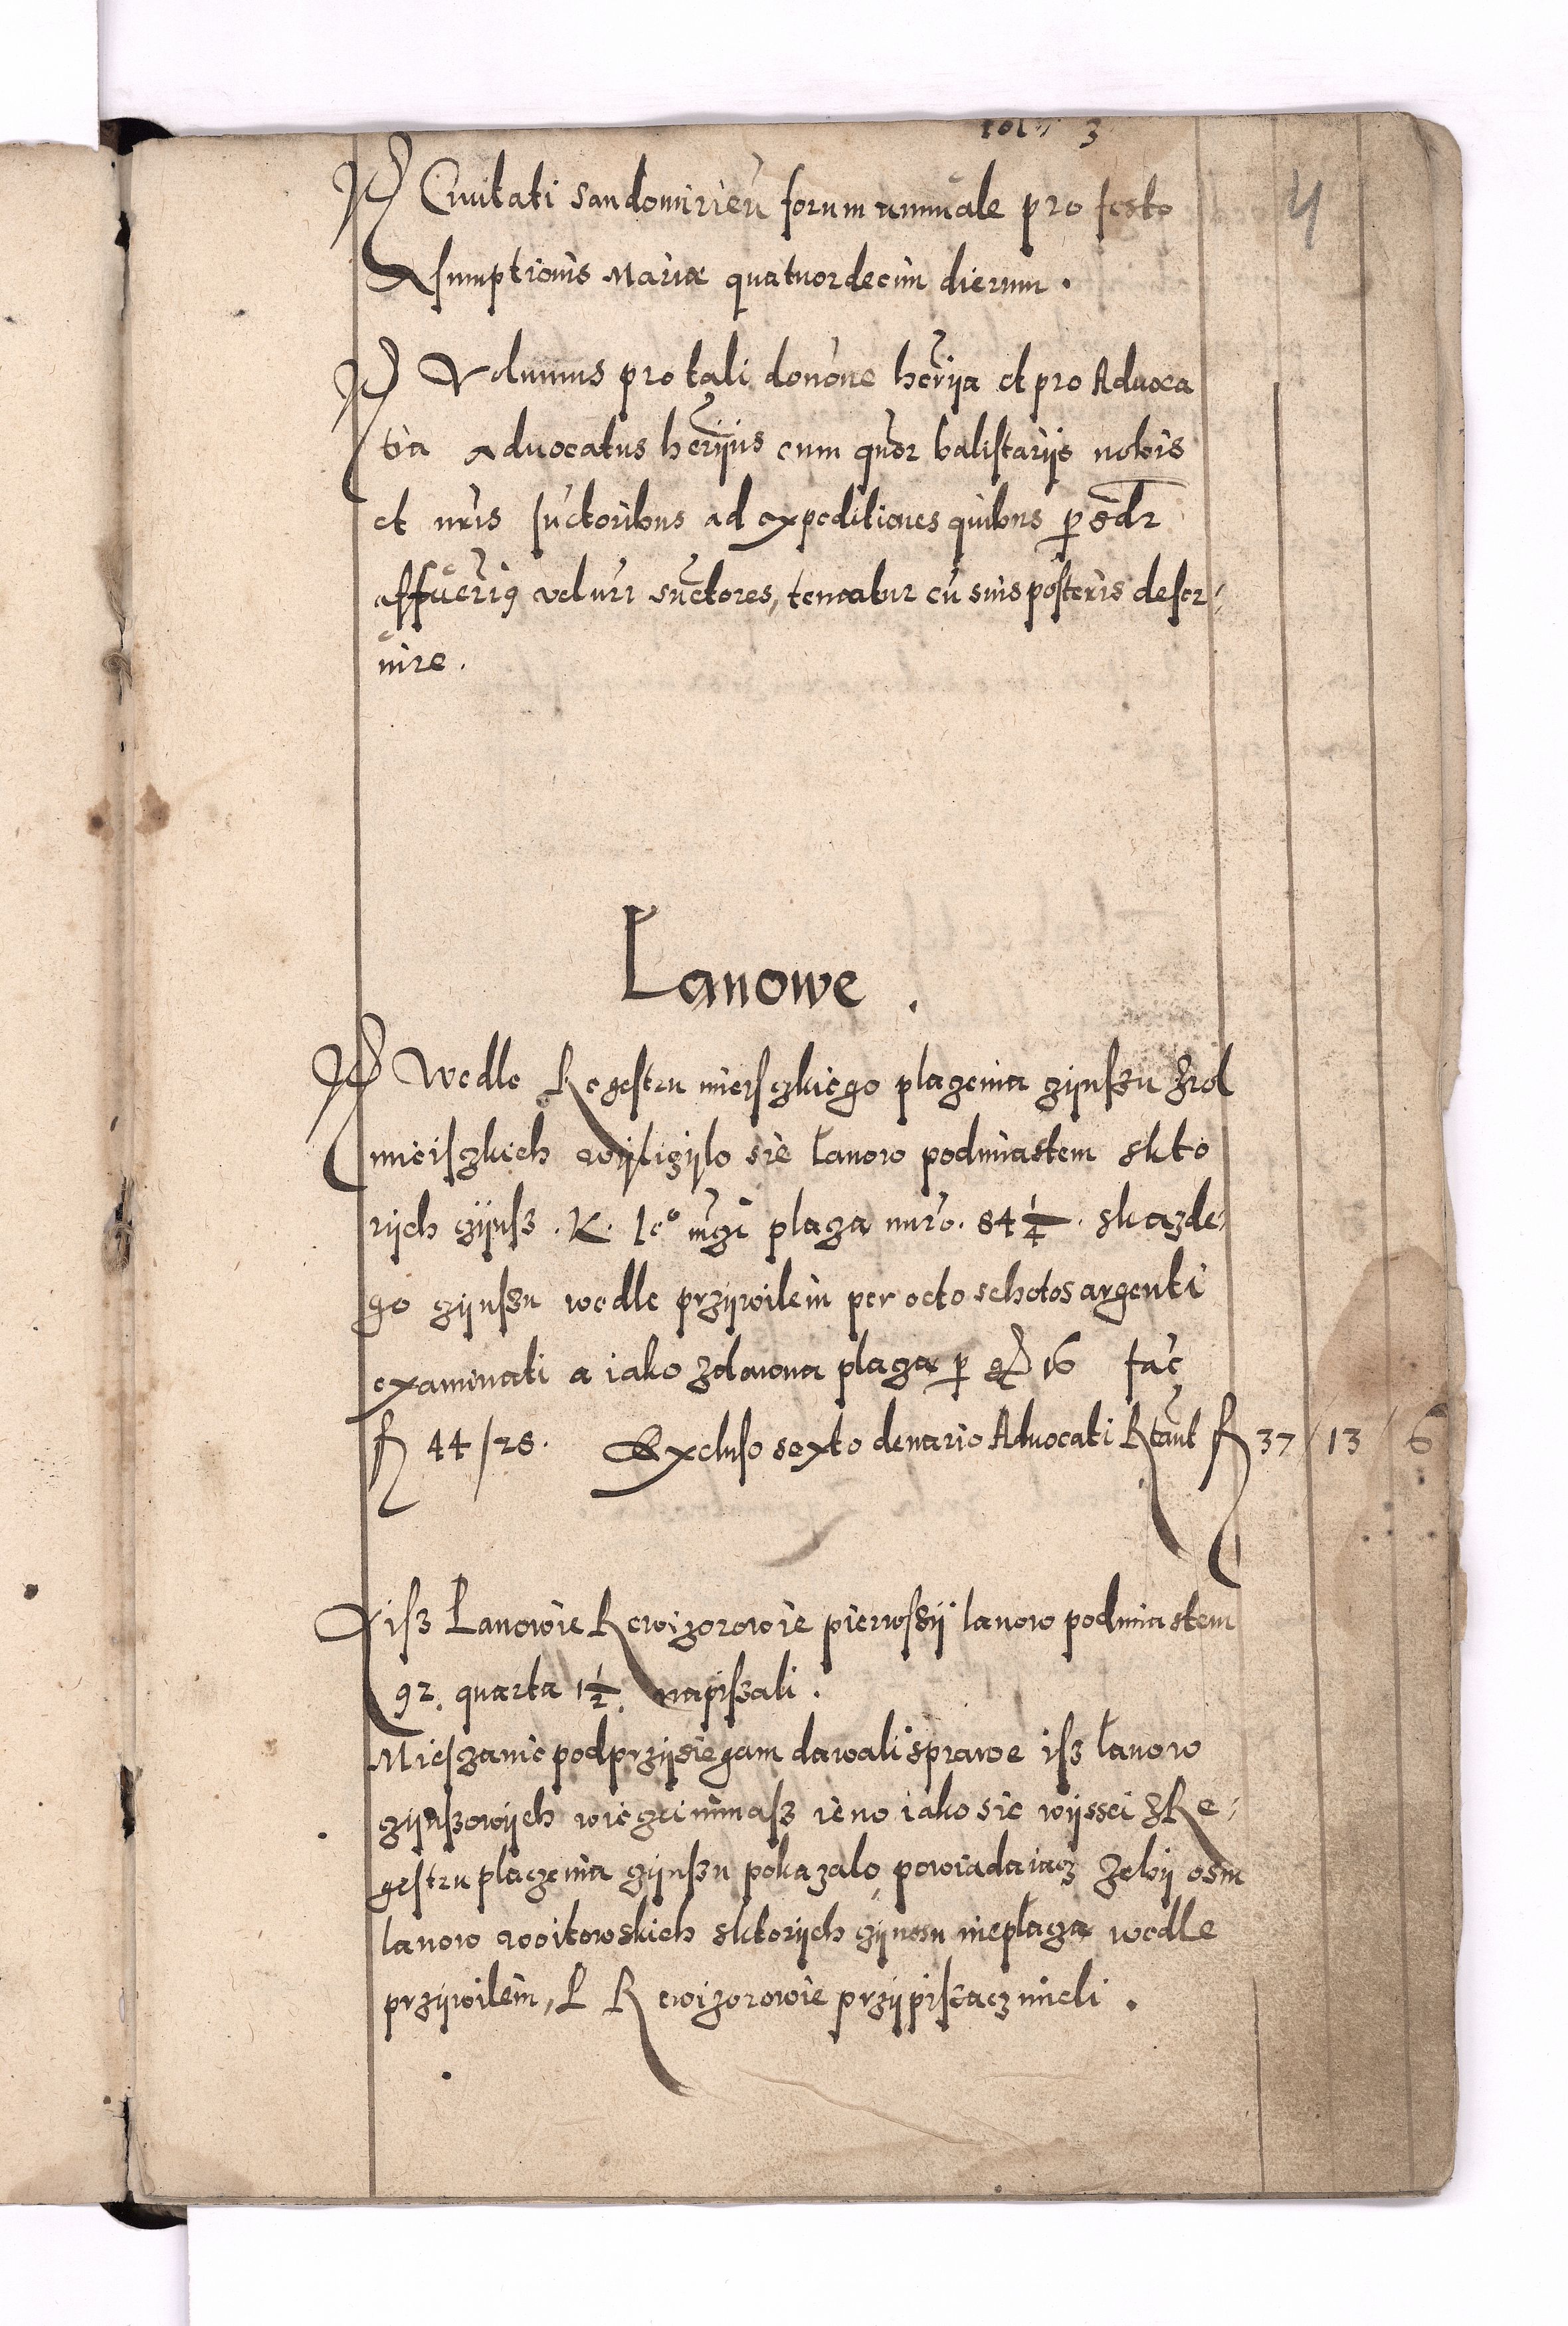 fol. 3
4
Civitati sandomirien̄ forum annuale pro festo
Assumptionis Mariæ quatuordecim dierum.
Volumus pro tali donōne herēija et pro Advoca
tia advocatus herēijus cum quōr balistarijs nobis
et nr̄is suc̄toribus ad expeditiones quibus
affuerim9 vel nr̄i suc̄tores, teneabitur cū suis posteris deser-
uire.
Łanowe.
Wedle Regestru mieisczkiego placzenia czijnszu Zrol
mieiszkich wijliczijlo sie łanow podmiastem skto
rijch czijnsz. K. Ic° mc̄i placza nūro. 84 1/4. skazde-
go czijnszu wedle przijwilein per octo schotos argenti
examinati a iako zdawna placza p gr 16 fac̄
fl 44/28. Excluso sexto denario Advocati Rtānt fl 37 / 13 / 6
isz Łanowie Rewizorowie pierwszij lanow podmiastem
92. quarta 1 1/2. napiszali.
Mieszczanie podprzijsiegam dawali sprawe isz łanow
czijnszowijch wieczei nimasz ieno iako sie wijssei zRe-
gestru placzenia czijnszu pokazalo, powiadaiacz zebij osm
lanow woitowskich sktorijch czijnssu niepłacza wedle
przijwilein, L Rewizorowie przijpiszacz mieli.